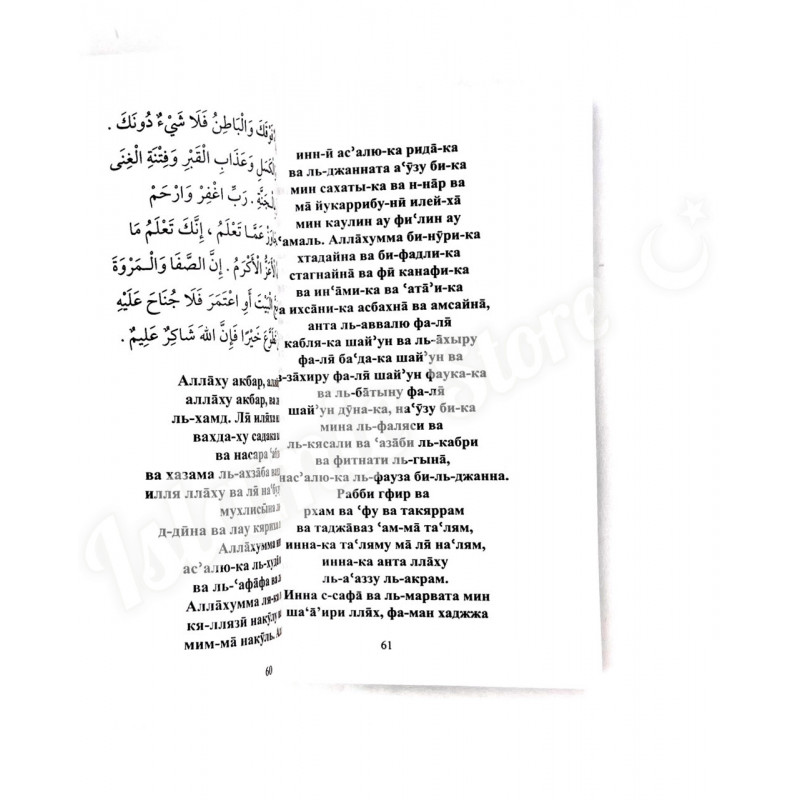 وَالْبَاطِنُ فَلَا شَيْءٌ دُونَكَ .
وَعَذَابِ الْقَبْرِ وَفِتْنَةِ الْغِنَى
رَبِّ اغْفِرْ وَارْحَمْ
عَمَّا تَعْلَمُ ، إِنَّكَ تَعْلَمُ مَا
الْأَكْرَمُ . إِنَّ الصَّفَا وَالْمَرْوَةَ
الْبَيْتَ أَوِ اعْتَمَرَ فَلَا جُنَاحَ عَلَيْهِ
خَيْرًا فَإِنَّ اللهَ شَاكِرٌ عَلِيمٌ .
Аллāху акбар,
аллāху акбар,
ль-хамд. Ля̄
вахда-ху
ва насара
ва хазама ль-ахзāба
илля ллāху ва ля̄
мухлисы̄на
д-дӣна ва лау
Аллāхумма
ас’алю-ка
ва ль-‘афāфа ва
Аллāхумма
кя-ллязӣ накӯлу
мим-мā накӯль.
60
инн-ӣ ас’алю-ка ридā-ка
ва ль-джанната а‘ӯзу би-ка
мин сахаты-ка ва н-нāр ва
мā йукаррибу-нӣ илей-хā
мин каулин ау фи‘лин ау
‘амаль. Аллāхумма би-нӯри-ка
хтадайна ва би-фадли-ка
стагнайна ва фӣ канафи-ка
ва ин‘āми-ка ва ‘атā’и-ка
ихсāни-ка асбахнā ва амсайнā,
анта ль-аввалю фа-ля̄
кабля-ка шай’ун ва ль-āхыру
фа-ля̄ ба‘да-ка шай’ун ва
з-зāхиру фа-ля̄ шай’ун фаука-ка
ва ль-бāтыну фа-ля̄
шай’ун дӯна-ка, на‘ӯзу би-ка
мина ль-фаляси ва
ль-кясали ва ‘азāби ль-кабри
ва фитнати ль-гынā,
нас’алю-ка ль-фауза би-ль-джанна.
Рабби гфир ва
рхам ва ‘фу ва такяррам
ва таджāваз ‘ам-мā та‘лям,
инна-ка та‘ляму мā ля̄ на‘лям,
инна-ка анта ллāху
ль-а‘аззу ль-акрам.
Инна с-сафā ва ль-марвата мин
ша‘ā’ири ллях, фа-ман хаджжа
61
Islamic Store